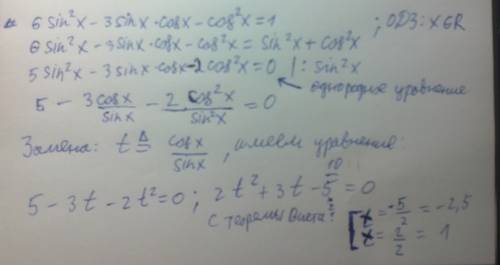 6 sin²x - 3 sinx · cosx - cos²x = 1 ; ОДЗ: x∈R
6 sin²x - 3 sinx · cosx - cos²x = sin²x + cos²x
5 sin²x - 3 sinx · cosx - 2 cos²x = 0 | : sin²x
однородное уравнение
5 - 3 cosx/sinx - 2 · cos²x/sin²x = 0
Замена: t ≜ cosx/sinx, имеем уравнение:
5 - 3t - 2t² = 0 ; 2t² + 3t - 5 = 0
10
с теоремы Виета:
[ t = -5/2 = -2,5
t = 2/2 = 1